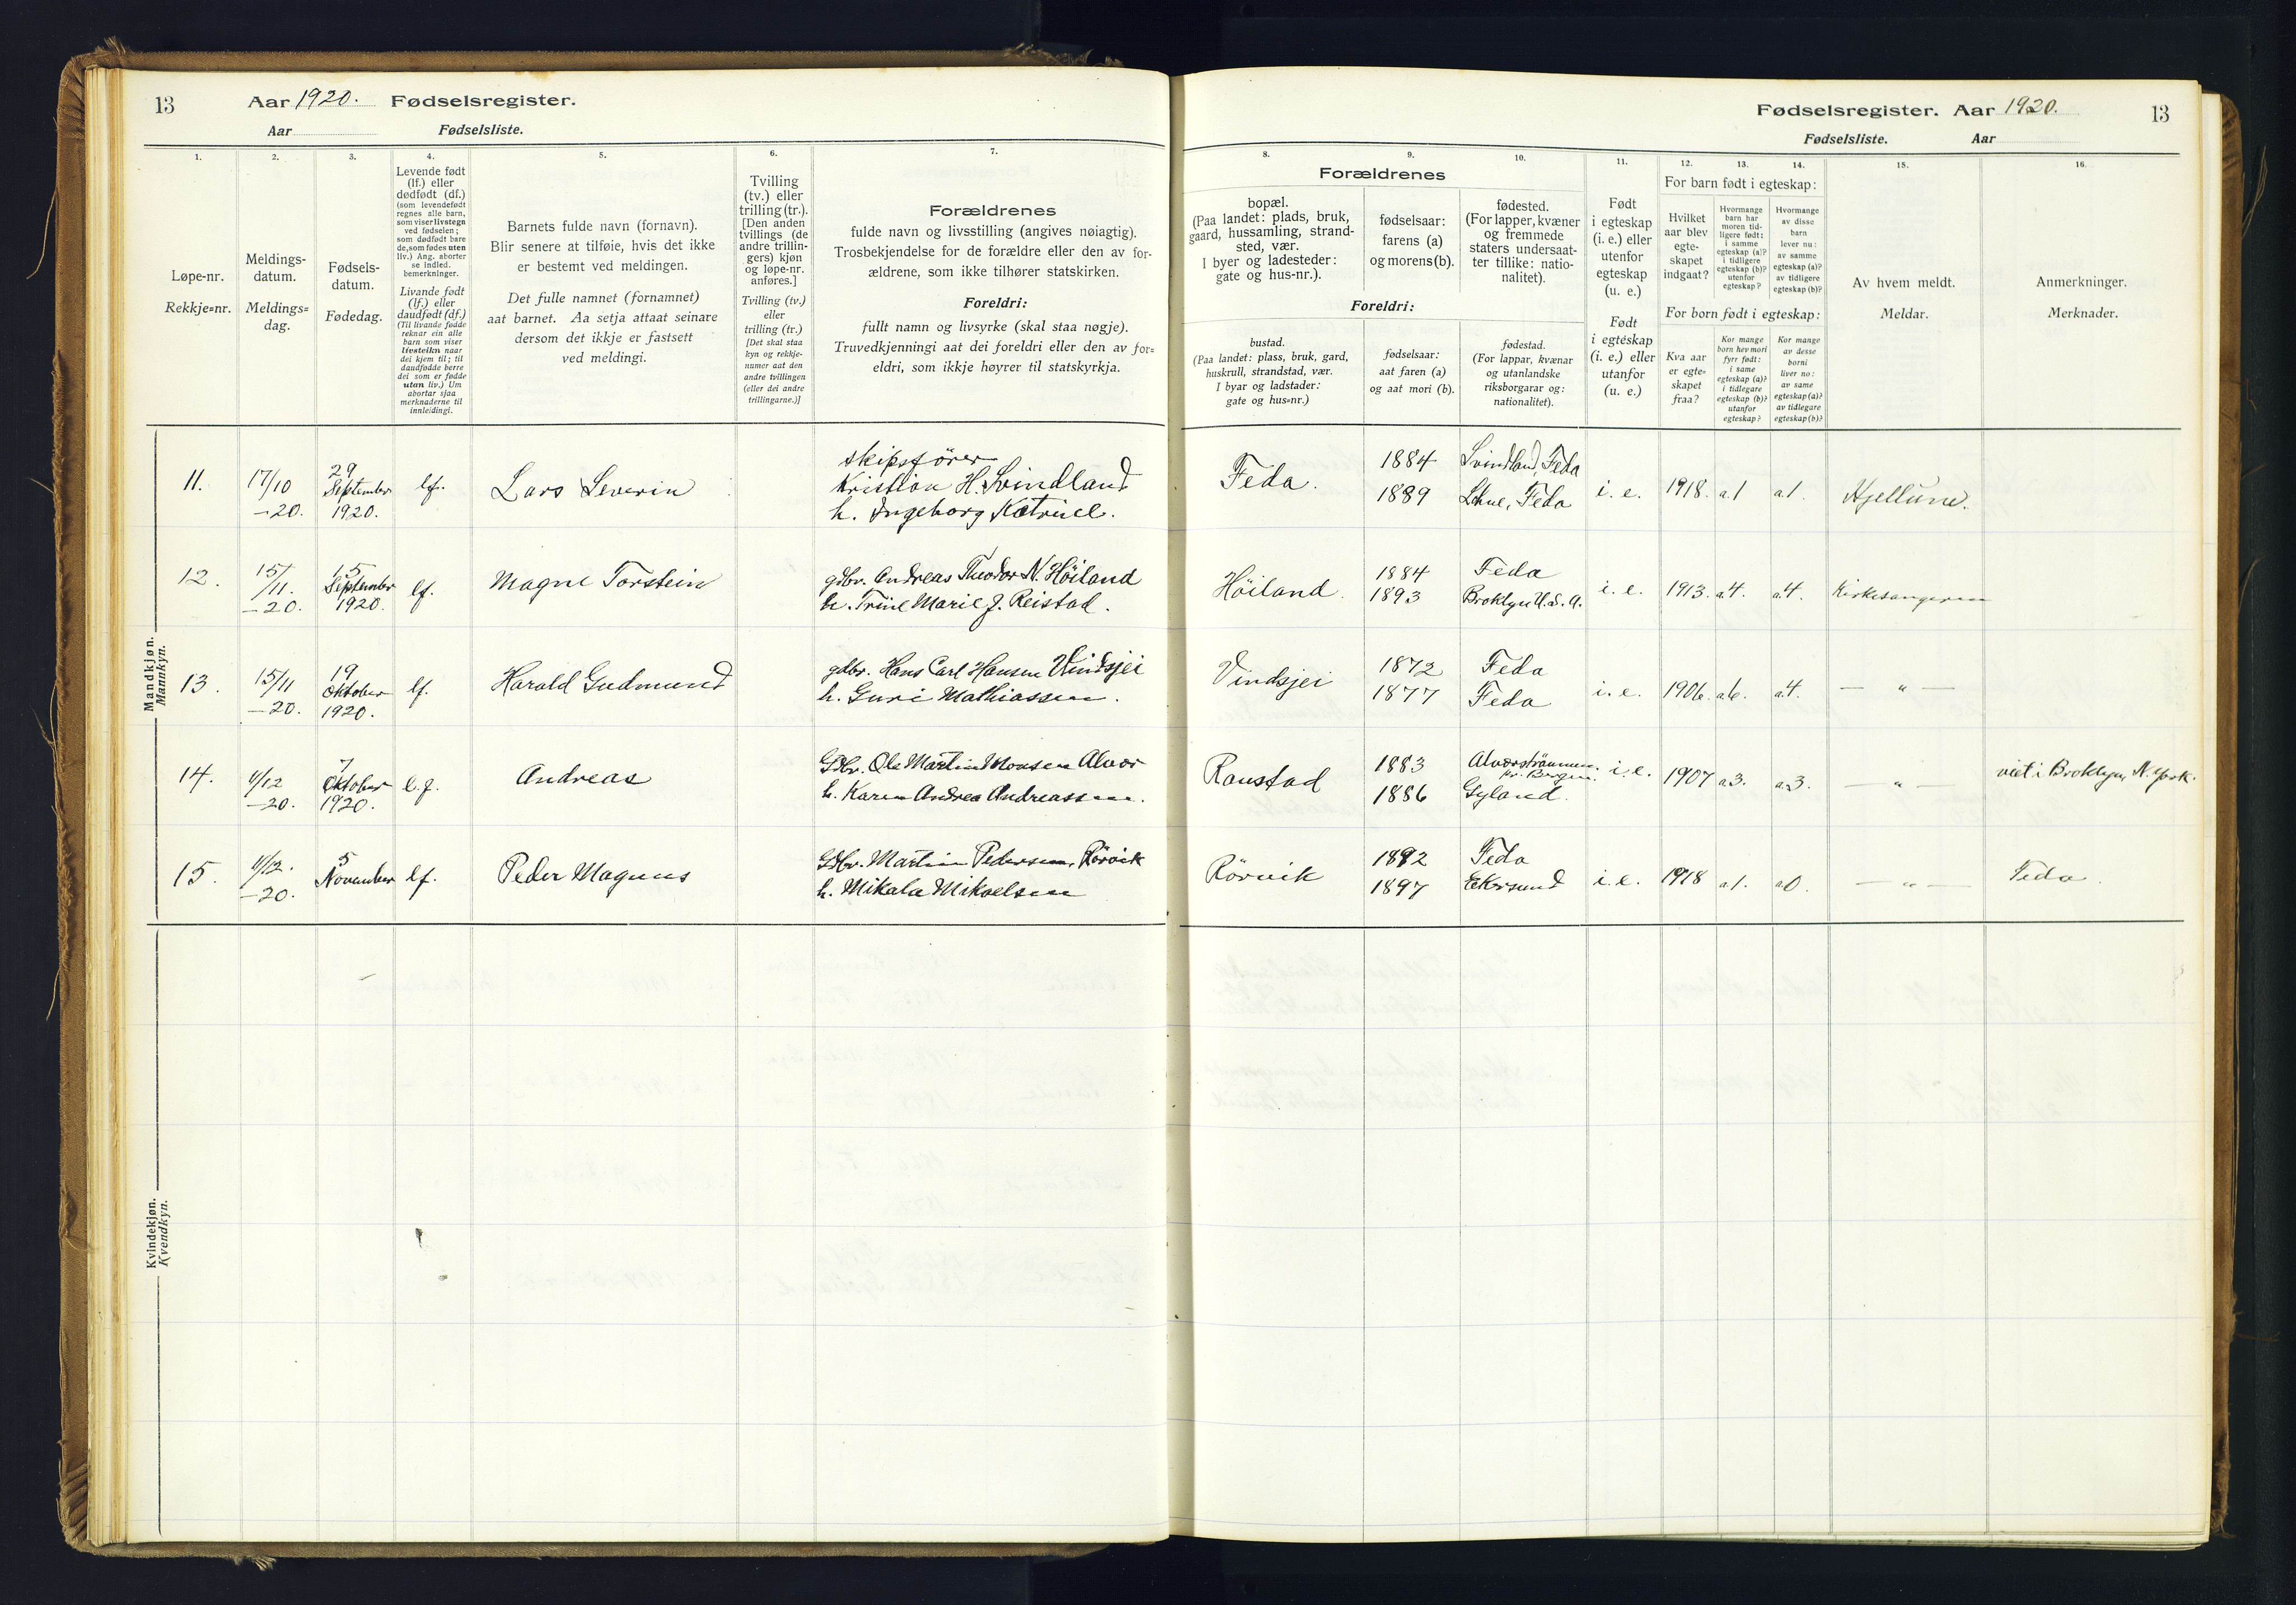 13 Aar 1920. Fødselsregister.
Aar Fødselsliste.
1. 2. 3. 4. 5. 6. 7.
Løpe-nr.
Rekkje=nr.
Meldings-
datum.
Meldings=
dag.
Fødsels-
datum.
Fødedag.
Levende født
(lf.) eller
dødfødt (df.)
(som levendefødt
regnes alle barn,
som viser livstegn
ved fødselen;
som dødfødt bare
de, som fødes uten
liv.) Ang. aborter
se indled.
bemerkninger.
Livande født
(lf.) eller
daudfødt (df.)
(Til livande fødde
reknar ein alle
barn som viser
livsteikn naar
dei kjem til; til
daudfødde berre
dei som er fødde
utan liv.) Um
abortar sjaa
merknaderne til
innleidingi.
Barnets fulde navn (fornavn).
Blir senere at tilføie, hvis det ikke
er bestemt ved meldingen.
Det fulle namnet (fornamnet)
aat barnet. Aa setja attaat seinare
dersom det ikkje er fastsett
ved meldingi.
Tvilling
(tv.) eller
trilling (tr.).
[Den anden
tvillings (de
andre trillin-
gers) kjøn
og løpe-nr.
anføres.]
Tvilling (tv.)
eller
trilling (tr.)
[Det skal staa
kyn og rekkje-
numer aat den
andre tvillingen
(eller dei andre
trillingarne.)]
Forældrenes
fulde navn og livsstilling (angives nøiagtig).
Trosbekjendelse for de forældre eller den av for-
ældrene, som ikke tilhører statskirken.
Foreldri:
fullt namn og livsyrke (skal staa nøgje).
Truvedkjenningi aat dei foreldri eller den av for=
eldri, som ikkje høyrer til statskyrkja.
Fødselsregister. Aar 1920. 13
Fødselsliste. Aar
8. 9. 10. 11. 12. 13. 14. 15. 16.
Forældrenes
bopæl.
(Paa landet: plads, bruk,
gaard, hussamling, strand-
sted, vær.
I byer og ladesteder:
gate og hus-nr.).
fødselsaar:
farens (a)
og morens (b).
fødested.
(For lapper, kvæner
og fremmede
staters undersaat-
ter tillike: natio-
nalitet).
Foreldri:
bustad.
(Paa landet: plass, bruk, gard,
huskrull, strandstad, vær.
I byar og ladstader:
gate og hus=nr.)
fødselsaar:
aat faren (a)
og aat mori (b).
fødestad.
(For lappar, kvænar
og utanlandske
riksborgarar og:
nationalitet).
Født
i egteskap
(i. e.) eller
utenfor
egteskap
(u. e.)
Født
i egteskap
(i. e.) eller
utanfor
(u. e.)
For barn født i egteskap:
Hvilket
aar blev
egte-
skapet
indgaat?
Hvormange
barn har
moren tid-
ligere født:
i samme
egteskap (a)?
i tidligere
egteskap (b)?
utenfor
egteskap?
Hvormange
av disse
barn
lever nu:
av samme
egteskap (a)?
av tidligere
egteskap (b)?
For born født i egteskap:
Kva aar
er egte=
skapet
fraa?
Kor mange
born hev mori
fyrr født:
i same
egteskap (a)?
i tidlegare
egteskap (b)?
utanfor
egteskap?
Kor mange
av desse
borni
liver no:
av same
egteskap (a)?
av tidlegare
egteskap (b)?
Av hvem meldt.
Meldar.
Anmerkninger.
Merknader.
Mandkjøn.
Mannkyn.
11. 17/10 –20. 29 September 1920. lf. Lars Severin
skipsfører
Kristian H. Svindland
h. Ingeborg Katrine.
Feda. 1884 Svindland, Feda
1889 Lehne, Feda i. e. 1918. a.1 a1. Hjellum.
12. 15/11. –20. 15 September 1920. lf. Magne Torstein
gdbr. Andreas Theodor N. Höiland
h. Trine Marie J. Reistad.
Höiland. 1884 Feda
1893 Broklyn U.S.A. i. e. 1913. a4. a4. Kirkesangeren
13. 15/11 –20. 19 Oktober 1920. lf. Harald Gudmund
gdbr. Hans Carl Hansen Vindsjei
h. Guri Mathiassen.
Vindsjei 1872 Feda
1877 Feda i. e. 1906. a6. a4. — " —
14. 11/12 –20. 7 Oktober 1920. l.f. Andreas
Gdbr. Ole Martin Monsen Alver
h. Karen Andrea Andreassen.
Raustad 1883 Alverströmmen pr. Bergen.
1886 Gyland. i. e. 1907 a3. a3. — " — viet i Broklyn, N. York.
15. 11/12. –20. 5 November lf. Peder Magnus
Gdbr. Martin Pedersen, Rörvik
h. Mikala Mikaelsen
Rörvik 1892 Feda
1897 Ekersund i. e. 1918 a1. a0. — " — Feda.
Kvindekjøn.
Kvendkyn.